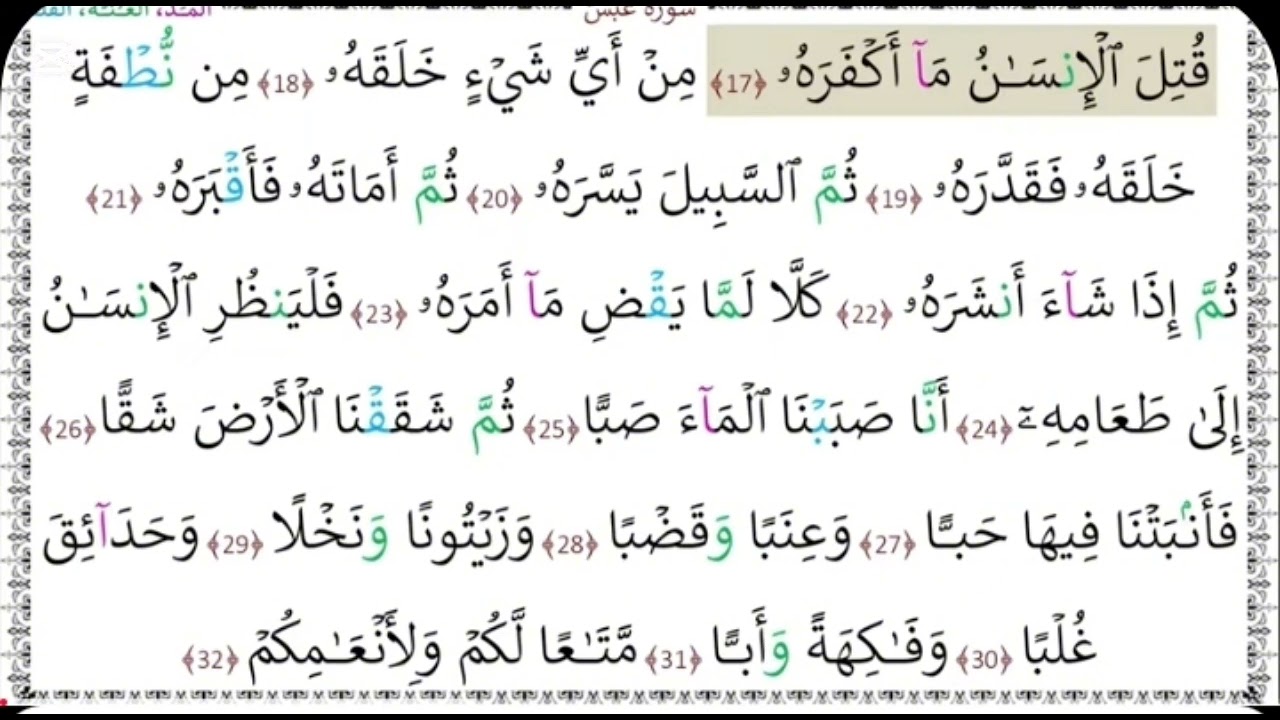 المـد، الغنـة، القلـ
سورة عبس
قُتِلَ ٱلْإِنسَـٰنُ مَآ أَكْفَرَهُۥ ﴿17﴾ مِنْ أَىِّ شَىْءٍ خَلَقَهُۥ ﴿18﴾ مِن نُّطْفَةٍ
خَلَقَهُۥ فَقَدَّرَهُۥ ﴿19﴾ ثُمَّ ٱلسَّبِيلَ يَسَّرَهُۥ ﴿20﴾ ثُمَّ أَمَاتَهُۥ فَأَقْبَرَهُۥ ﴿21﴾
ثُمَّ إِذَا شَآءَ أَنشَرَهُۥ ﴿22﴾ كَلَّا لَمَّا يَقْضِ مَآ أَمَرَهُۥ ﴿23﴾ فَلْيَنظُرِ ٱلْإِنسَـٰنُ
إِلَىٰ طَعَامِهِۦٓ ﴿24﴾ أَنَّا صَبَبْنَا ٱلْمَآءَ صَبًّا ﴿25﴾ ثُمَّ شَقَقْنَا ٱلْأَرْضَ شَقًّا ﴿26﴾
فَأَنۢبَتْنَا فِيهَا حَبًّا ﴿27﴾ وَعِنَبًا وَقَضْبًا ﴿28﴾ وَزَيْتُونًا وَنَخْلًا ﴿29﴾ وَحَدَآئِقَ
غُلْبًا ﴿30﴾ وَفَـٰكِهَةً وَأَبًّا ﴿31﴾ مَّتَـٰعًا لَّكُمْ وَلِأَنْعَـٰمِكُمْ ﴿32﴾